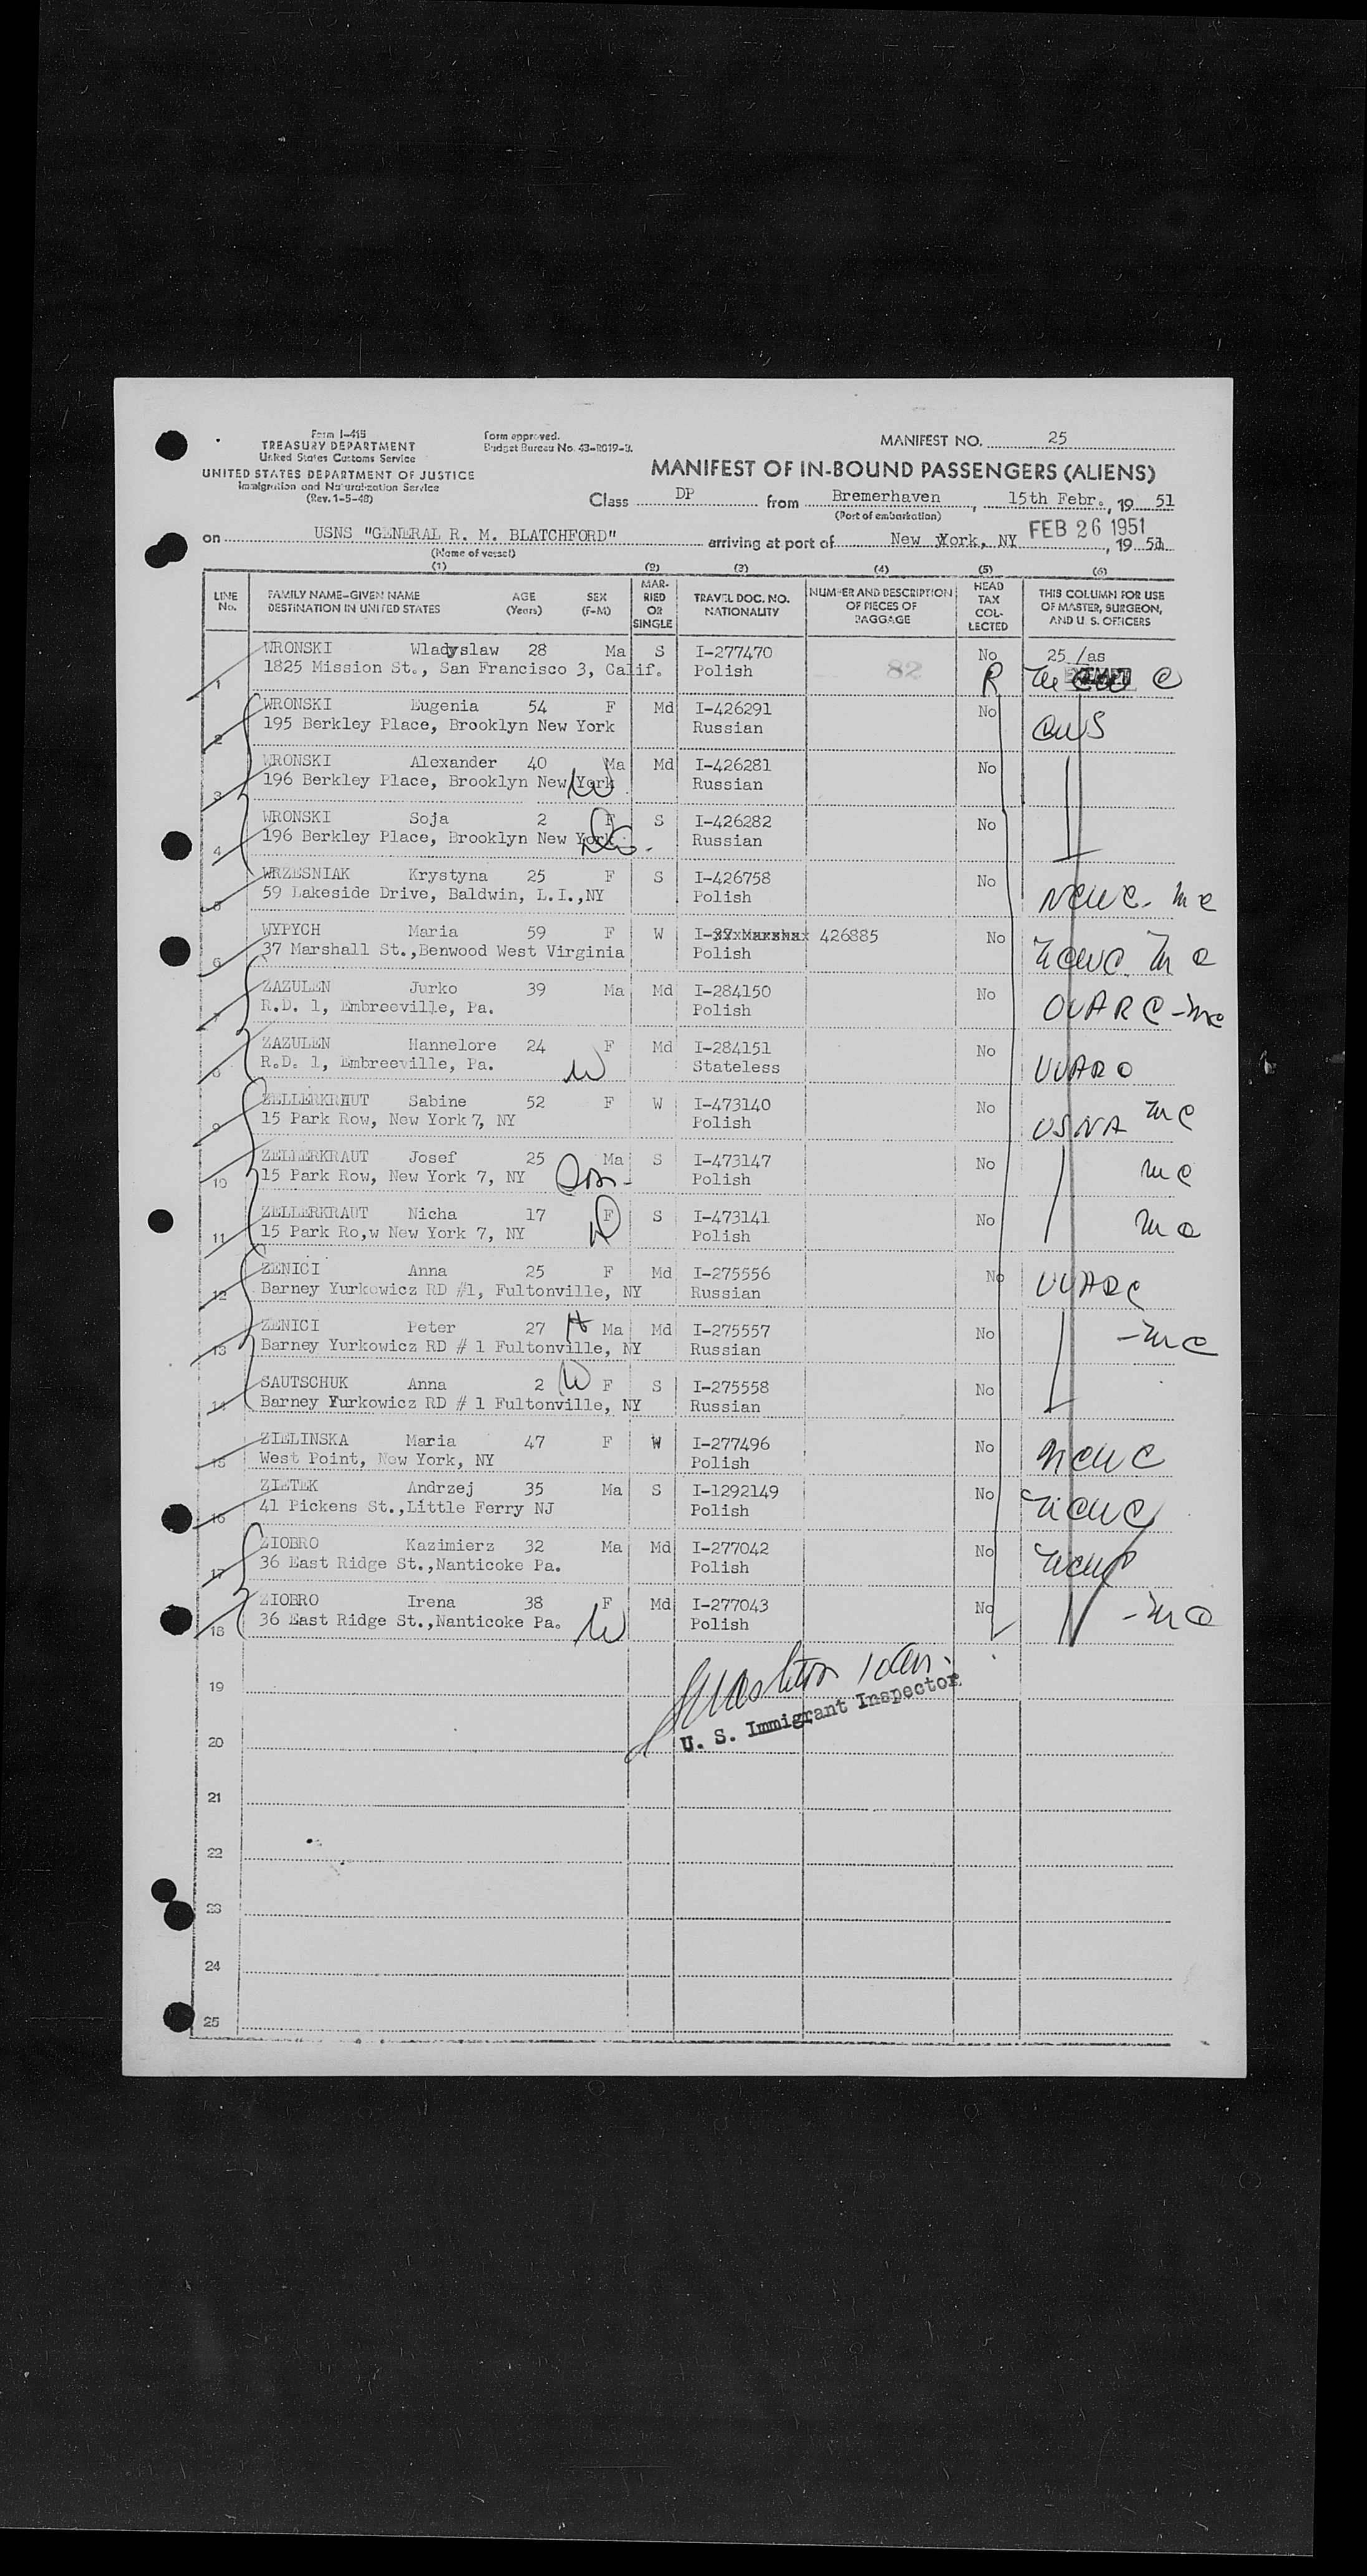 Form I-415
TREASURY DEPARTMENT
United States Customs Service
UNITED STATES DEPARTMENT OF JUSTICE
Immigration and Naturalization Service
(Rev. 1-5-48)
Form approved.
Budget Bureau No. 43-R019-3.
MANIFEST NO. 25
MANIFEST OF IN-BOUND PASSENGERS (ALIENS)
Class DP from Bremerhaven, 15th Febr., 19 51
(Port of embarkation)
on USNS "GENERAL R. M. BLATCHFORD" arriving at port of New York, NY FEB 26 1951, 19 51
(Name of vessel)
(1) (2) (3) (4) (5) (6)
LINE No. FAMILY NAME-GIVEN NAME DESTINATION IN UNITED STATES AGE (Years) SEX (F-M) MARRIED OR SINGLE TRAVEL DOC. NO. NATIONALITY NUMBER AND DESCRIPTION OF PIECES OF BAGGAGE HEAD TAX COLLECTED THIS COLUMN FOR USE OF MASTER, SURGEON, AND U. S. OFFICERS
WRONSKI Wladyslaw 28 Ma S I-277470 No 25 /as
1 1825 Mission St., San Francisco 3, Calif. Polish 82 R
WRONSKI Eugenia 54 F Md I-426291 No
2 195 Berkley Place, Brooklyn New York Russian CWS
WRONSKI Alexander 40 Ma Md I-426281 No
3 196 Berkley Place, Brooklyn New York W Russian
WRONSKI Soja 2 F S I-426282 No
4 196 Berkley Place, Brooklyn New York Russian
WRZESNIAK Krystyna 25 F S I-426758 No
5 59 Lakeside Drive, Baldwin, L.I.,NY Polish NCWC - mc
WYPYCH Maria 59 F W I-426885 No
6 37 Marshall St.,Benwood West Virginia Polish NCWC mc
ZAZULEN Jurko 39 Ma Md I-284150 No
7 R.D. 1, Embreeville, Pa. Polish UUARC - mc
ZAZULEN Hannelore 24 F Md I-284151 No
8 R.D. 1, Embreeville, Pa. W Stateless UUARC
ZELLERKRAUT Sabine 52 F W I-473140 No
9 15 Park Row, New York 7, NY Polish USNA mc
ZELLERKRAUT Josef 25 Ma S I-473147 No
10 15 Park Row, New York 7, NY Son - Polish mc
ZELLERKRAUT Nicha 17 F S I-473141 No
11 15 Park Ro,w New York 7, NY D Polish mc
ZENICI Anna 25 F Md I-275556 No
12 Barney Yurkowicz RD #1, Fultonville, NY Russian UUARC
ZENICI Peter 27 H Ma Md I-275557 No
13 Barney Yurkowicz RD # 1 Fultonville, NY Russian - mc
SAUTSCHUK Anna 2 W F S I-275558 No
14 Barney Yurkowicz RD # 1 Fultonville, NY Russian
ZIELINSKA Maria 47 F W I-277496 No
15 West Point, New York, NY Polish NCWC
ZIETEK Andrzej 35 Ma S I-1292149 No
16 41 Pickens St.,Little Ferry NJ Polish NCWC
ZIOBRO Kazimierz 32 Ma Md I-277042 No
17 36 East Ridge St.,Nanticoke Pa. Polish NCWC
ZIOBRO Irena 38 F Md I-277043 No
18 36 East Ridge St.,Nanticoke Pa. W Polish - mc
19
U. S. Immigrant Inspector
20
21
22
23
24
25